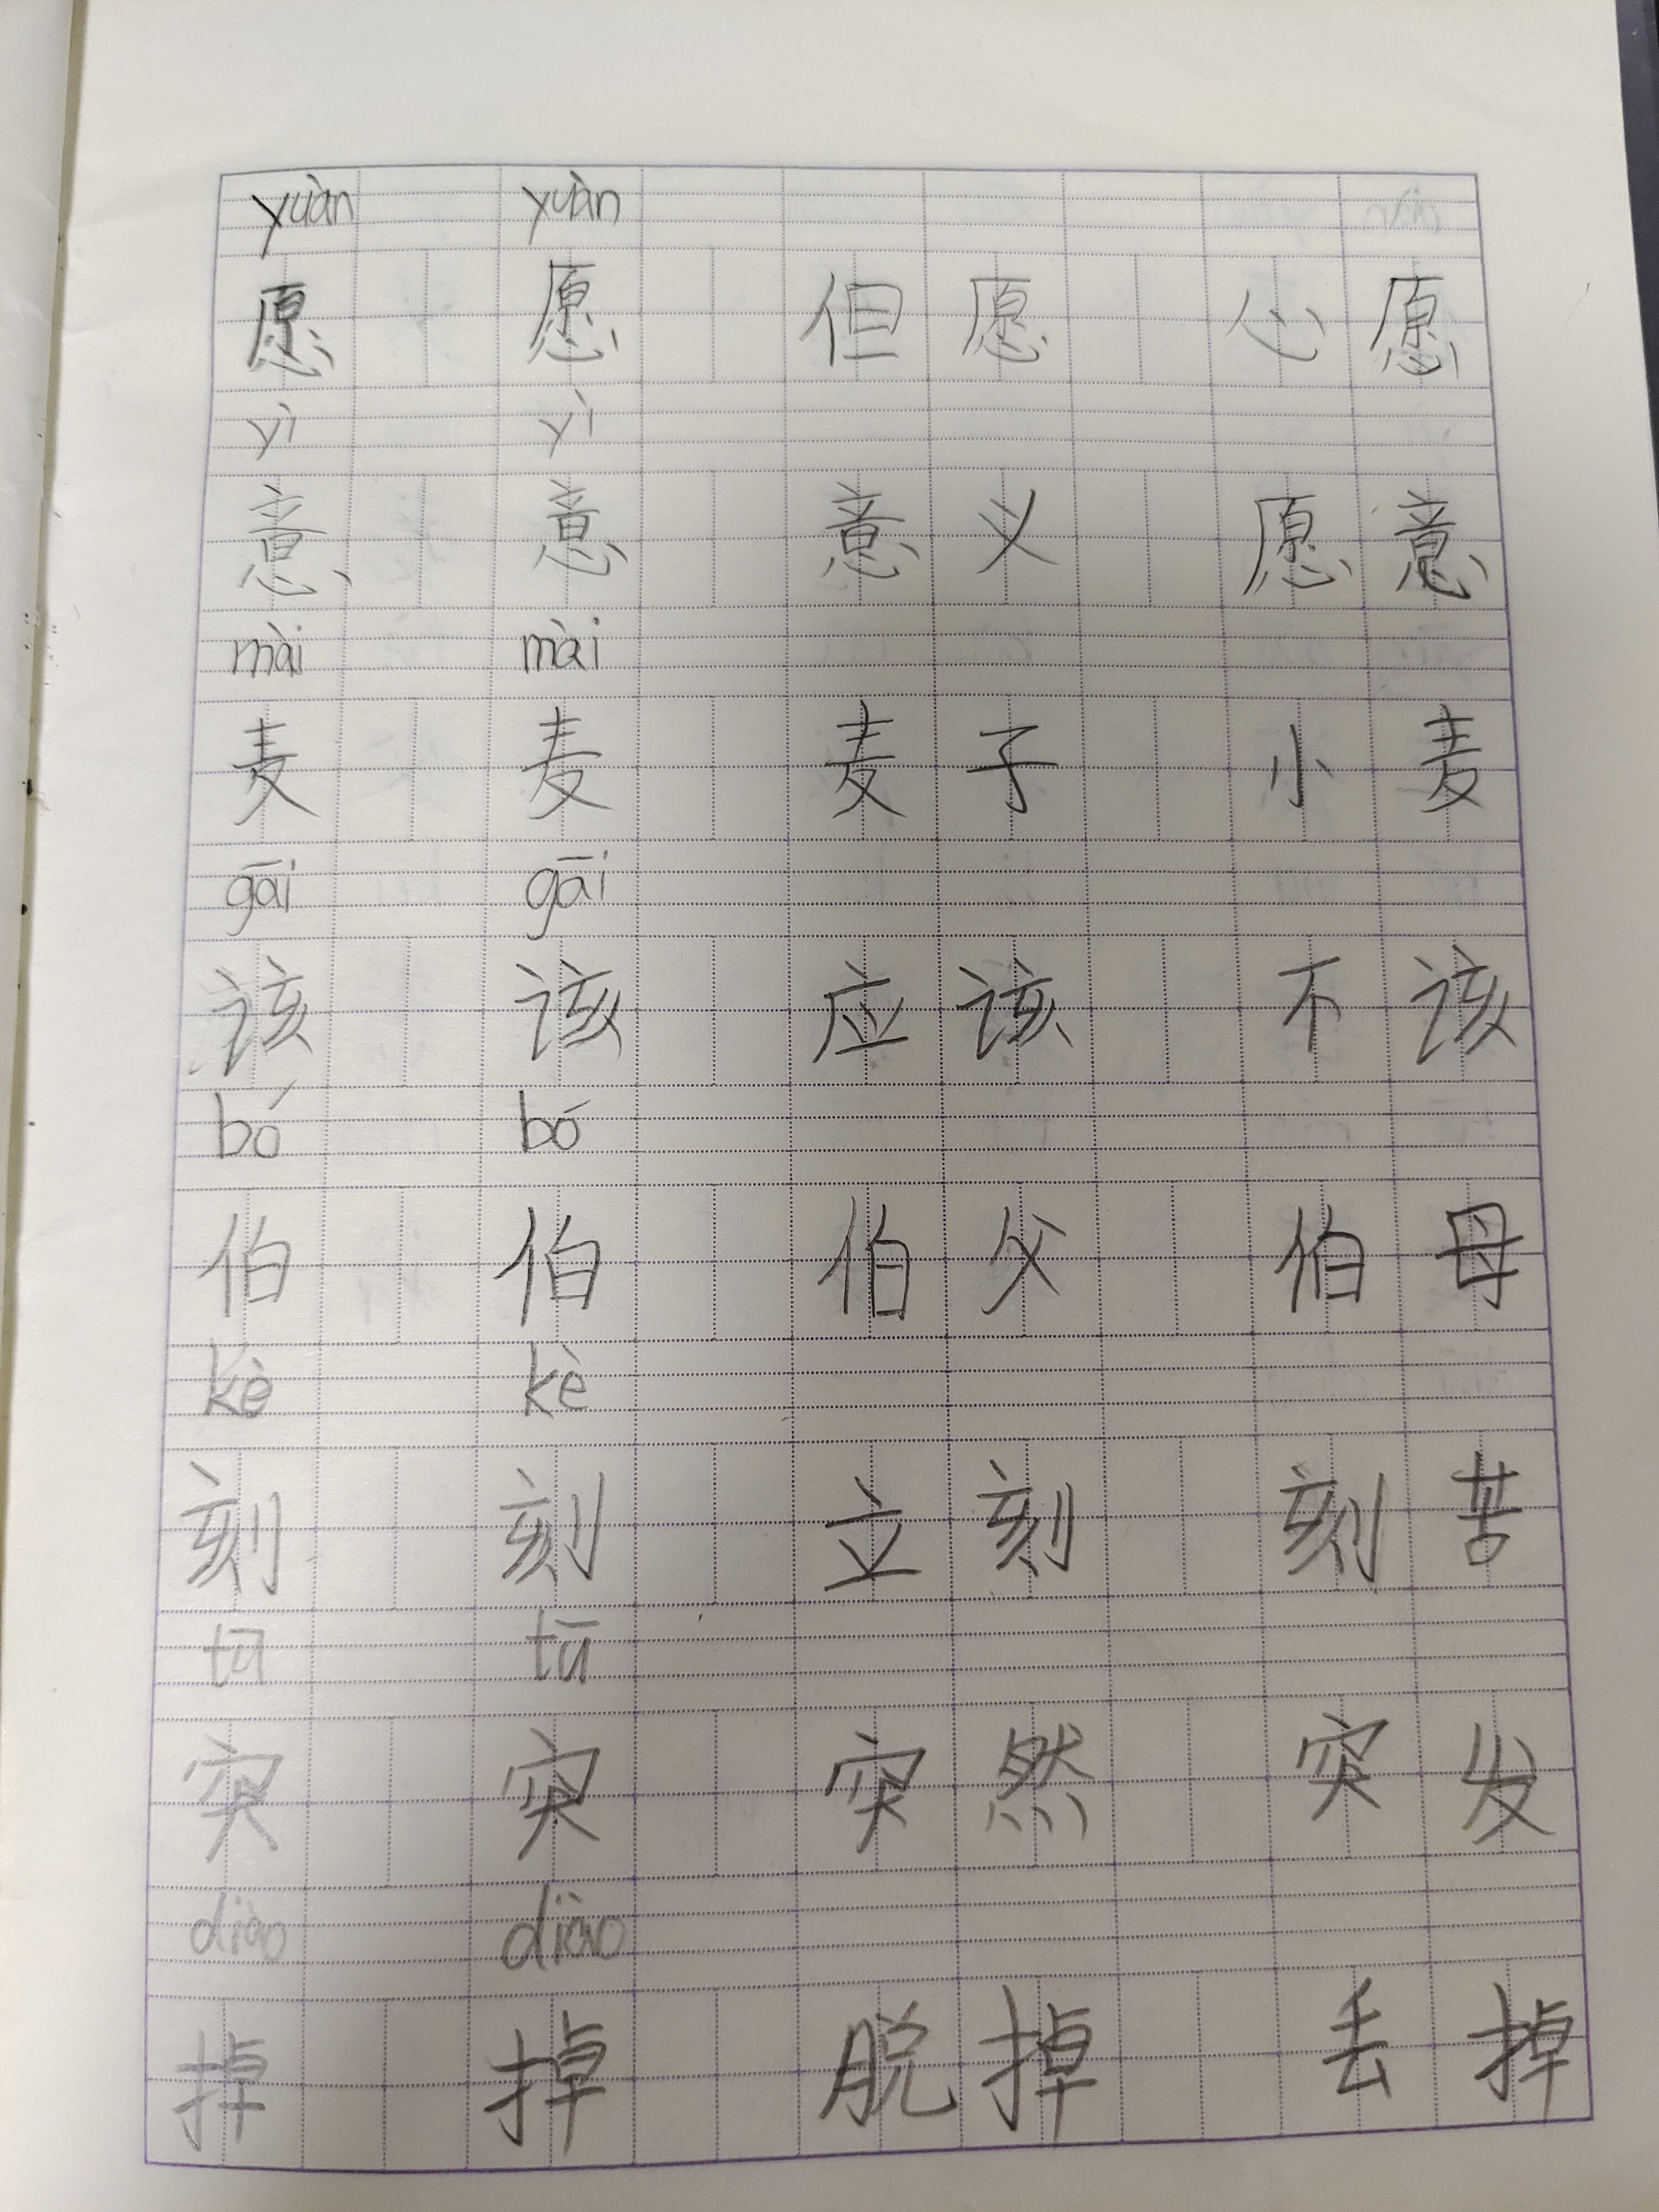 yuàn yuàn
愿 愿 但愿 心愿
yì yì
意 意 意义 愿意
mài mài
麦 麦 麦子 小麦
gāi gāi
该 该 应该 不该
bó bó
伯 伯 伯父 伯母
kè kè
刻 刻 立刻 刻苦
tū tū
突 突 突然 突发
diào diào
掉 掉 脱掉 丢掉